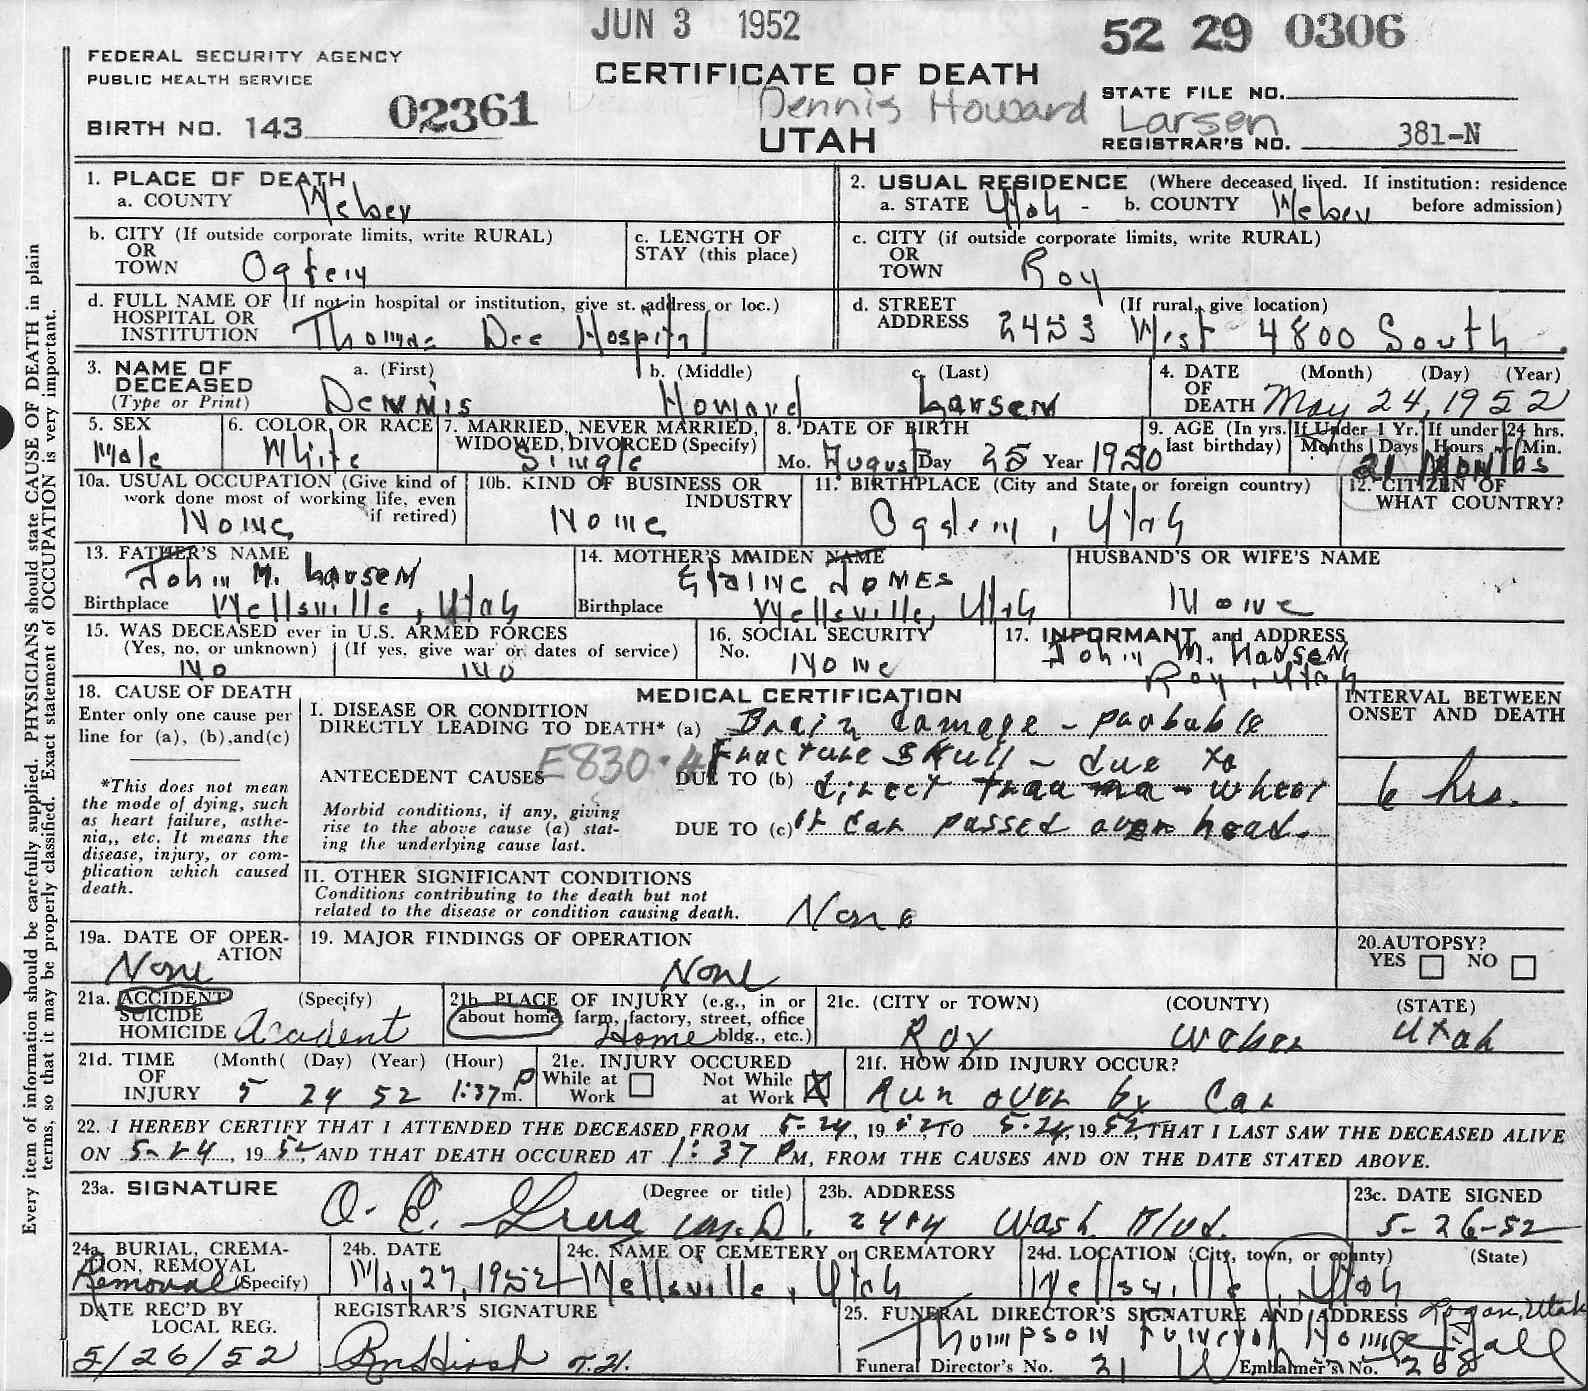 JUN 3 1952
52 29 0306
FEDERAL SECURITY AGENCY
PUBLIC HEALTH SERVICE
CERTIFICATE OF DEATH
STATE FILE NO.
Dennis Howard Larsen
BIRTH NO. 143 02361
UTAH
REGISTRAR'S NO. 381-N
Every item of information should be carefully supplied. PHYSICIANS should state CAUSE OF DEATH in plain
terms, so that it may be properly classified. Exact statement of OCCUPATION is very important.
1. PLACE OF DEATH
a. COUNTY Weber
2. USUAL RESIDENCE (Where deceased lived. If institution: residence
before admission)
a. STATE Utah - b. COUNTY Weber
b. CITY (If outside corporate limits, write RURAL)
OR
TOWN Ogden
c. LENGTH OF
STAY (this place)
c. CITY (if outside corporate limits, write RURAL)
OR
TOWN Roy
d. FULL NAME OF (If not in hospital or institution, give st. address or loc.)
HOSPITAL OR
INSTITUTION Thomas Dee Hospital
d. STREET (If rural, give location)
ADDRESS 2453 West 4800 South
3. NAME OF
DECEASED
(Type or Print)
a. (First) b. (Middle) c. (Last)
Dennis Howard Larsen
4. DATE (Month) (Day) (Year)
OF
DEATH May 24, 1952
5. SEX
Male
6. COLOR OR RACE
White
7. MARRIED, NEVER MARRIED,
WIDOWED, DIVORCED (Specify)
Single
8. DATE OF BIRTH
Mo. August Day 25 Year 1950
9. AGE (In yrs. last birthday)
If Under 1 Yr. Months Days
If under 24 hrs. Hours Min.
21 Months
10a. USUAL OCCUPATION (Give kind of
work done most of working life, even
if retired)
None
10b. KIND OF BUSINESS OR
INDUSTRY
None
11. BIRTHPLACE (City and State or foreign country)
Ogden, Utah
12. CITIZEN OF
WHAT COUNTRY?
13. FATHER'S NAME
John M. Larsen
Birthplace Wellsville, Utah
14. MOTHER'S MAIDEN NAME
Elaine Jones
Birthplace Wellsville, Utah
HUSBAND'S OR WIFE'S NAME
None
15. WAS DECEASED ever in U.S. ARMED FORCES
(Yes, no, or unknown) (If yes, give war or dates of service)
No No
16. SOCIAL SECURITY
No. None
17. INFORMANT and ADDRESS
John M. Larsen
Roy, Utah
18. CAUSE OF DEATH
Enter only one cause per
line for (a), (b),and(c)
*This does not mean
the mode of dying, such
as heart failure, asthe-
nia,, etc. It means the
disease, injury, or com-
plication which caused
death.
MEDICAL CERTIFICATION
INTERVAL BETWEEN
ONSET AND DEATH
I. DISEASE OR CONDITION
DIRECTLY LEADING TO DEATH* (a) Brain damage - probable
fracture skull - due to
E830.4
ANTECEDENT CAUSES DUE TO (b) direct trauma - wheel
6 hrs.
Morbid conditions, if any, giving
rise to the above cause (a) stat-
ing the underlying cause last.
DUE TO (c) of car passed over head.
II. OTHER SIGNIFICANT CONDITIONS
Conditions contributing to the death but not
related to the disease or condition causing death.
None
19a. DATE OF OPER-
ATION
None
19. MAJOR FINDINGS OF OPERATION
None
20.AUTOPSY?
YES NO
21a. ACCIDENT (Specify)
SUICIDE
HOMICIDE Accident
21b. PLACE OF INJURY (e.g., in or
about home, farm, factory, street, office
bldg., etc.)
Home
21c. (CITY or TOWN) (COUNTY) (STATE)
Roy Weber Utah
21d. TIME (Month( (Day) (Year) (Hour)
OF
INJURY 5 24 52 1:37 P m.
21e. INJURY OCCURED
While at Work
Not While at Work X
21f. HOW DID INJURY OCCUR?
Run over by Car
22. I HEREBY CERTIFY THAT I ATTENDED THE DECEASED FROM 5-24, 1952 TO 5-24, 1952, THAT I LAST SAW THE DECEASED ALIVE
ON 5-24, 1952, AND THAT DEATH OCCURED AT 1:37 PM, FROM THE CAUSES AND ON THE DATE STATED ABOVE.
23a. SIGNATURE (Degree or title)
O. E. M.D.
23b. ADDRESS
2404 Wash Blvd.
23c. DATE SIGNED
5-26-52
24a. BURIAL, CREMA-
TION, REMOVAL
(Specify)
Removal
24b. DATE
May 27, 1952
24c. NAME OF CEMETERY or CREMATORY
Wellsville, Utah
24d. LOCATION (City, town, or county) (State)
Wellsville, Utah
DATE REC'D BY
LOCAL REG.
5/26/52
REGISTRAR'S SIGNATURE
25. FUNERAL DIRECTOR'S SIGNATURE AND ADDRESS Logan, Utah
Thompson Funeral Home
Funeral Director's No. 21 Embalmer's No. 268